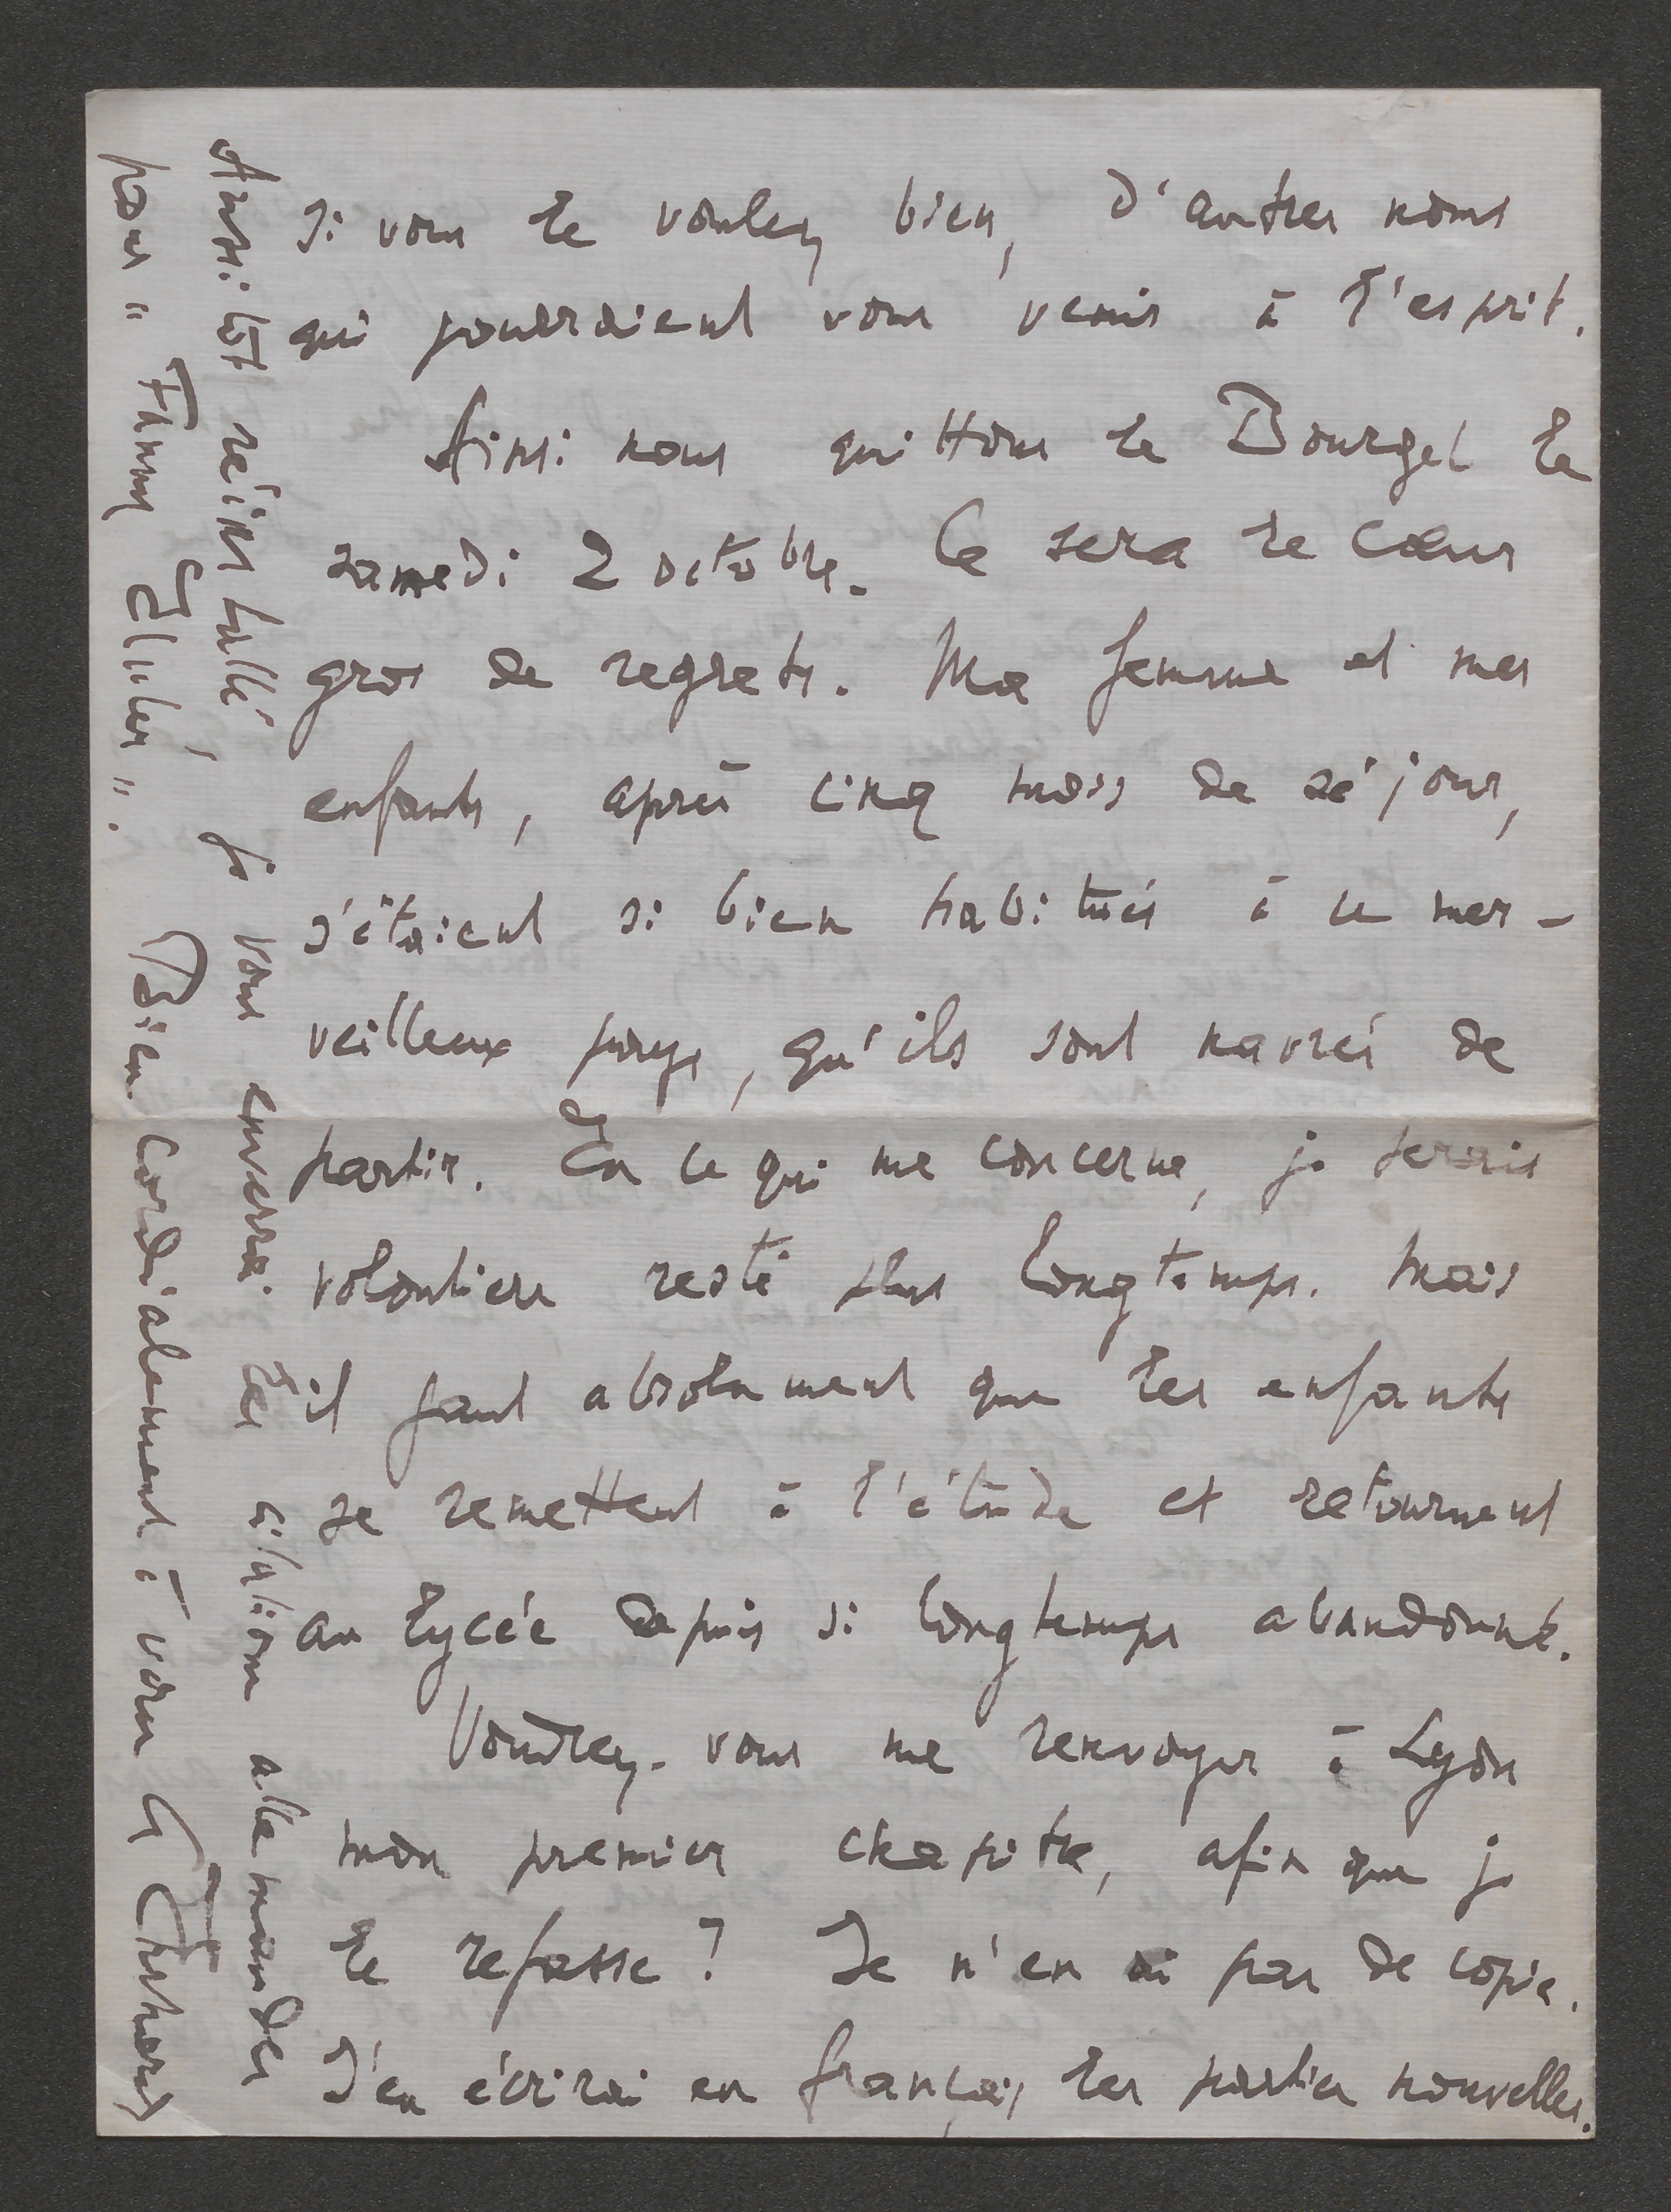 si vous le voulez bien, d'autres noms
qui pourraient vous venir à l'esprit.
Ainsi nous quittons le Bourget le
samedi 2 octobre. Ce sera le cœur
gros de regrets. Ma femme et mes
enfants, après cinq mois de séjour,
s'étaient si bien habitués à ce mer-
veilleux pays, qu'ils sont navrés de
partir. En ce qui me concerne, je serais
volontiers resté plus longtemps. Mais
il faut absolument que les enfants
se remettent à l'étude et retournent
au lycée depuis si longtemps abandonné.
Voudrez-vous me renvoyer à Lyon
mon premier chapitre, afin que je
le refasse? Je n'en ai pas de copie.
J'en écrirai en français les parties nouvelles.
Aussitôt réinstallé, je vous enverrai les citations allemandes
pour "Fanny Elssler". Bien cordialement à vous